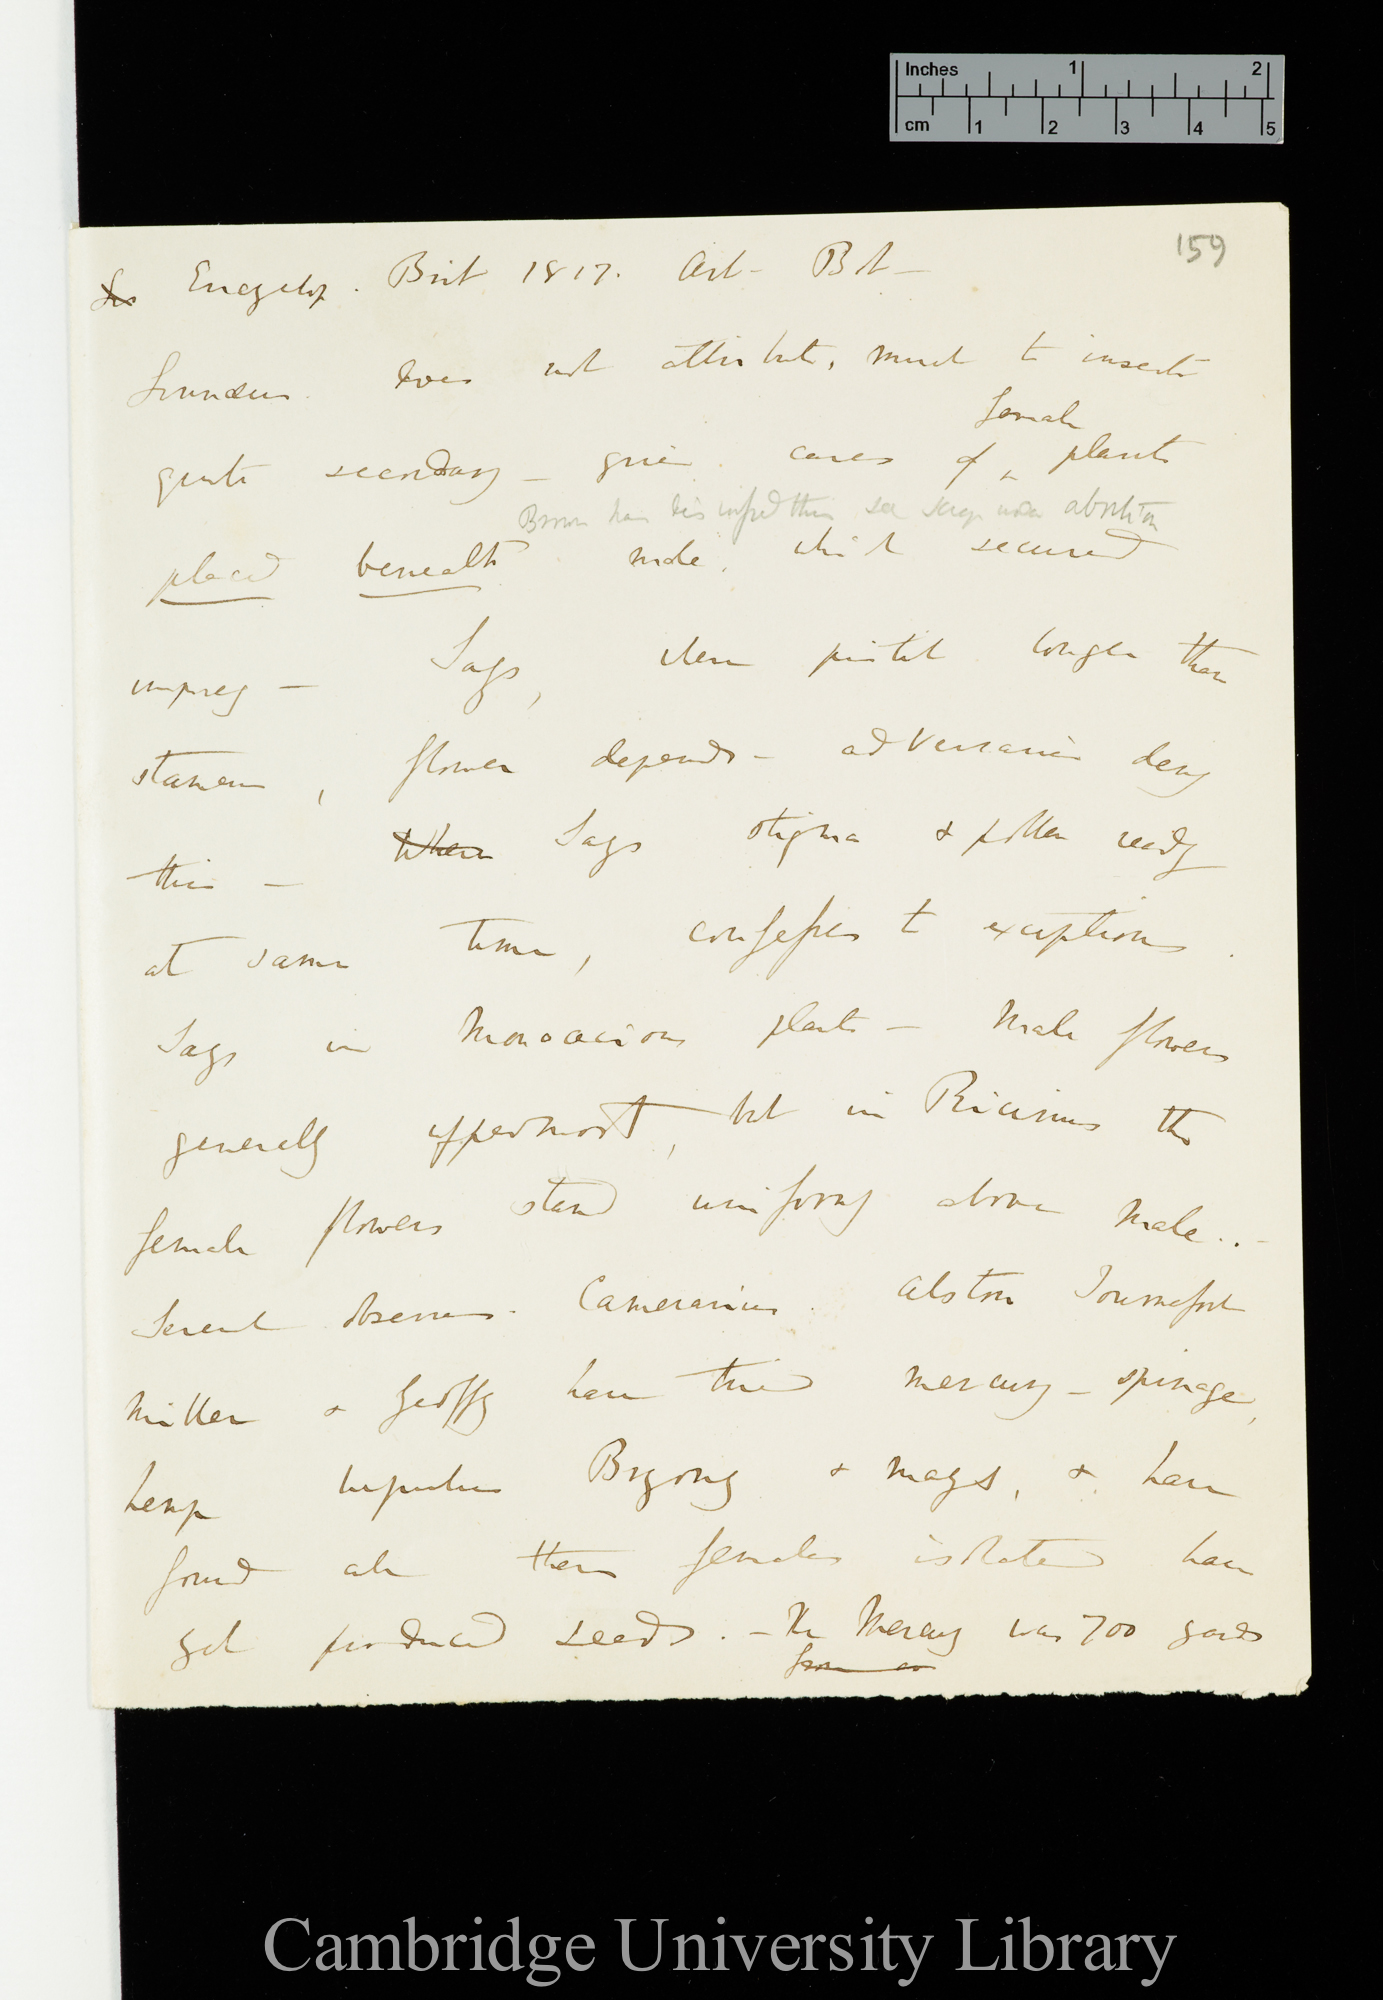 Inches 1 2
cm 1 2 3 4 5
159
Encyclop. Brit 1817. Art – Bot –
Linnæus. does not attribute, much to insects
female
quite secondary – gives cases of ^ plants
Brown has this see under abortion
placed beneath male, which secured
impreg – Says, when pistil longer than
stamen, flower depends – adversaries deny
this – When Says stigma & pollen ready
at same time, confesses to exceptions.
Says in Monœcious plants – Male flowers
generally uppermost, but in Ricinus the
female flowers stand uniformy above male..–
Several observers. Camerarius. Alston Tournefort
Miller & Geoffy have tried mercury – spinage,
hemp lupulus Bryony & mays, & have
found all these females isolated have
yet produced seeds. – The Mercury was 700 yards
from
Cambridge University Library